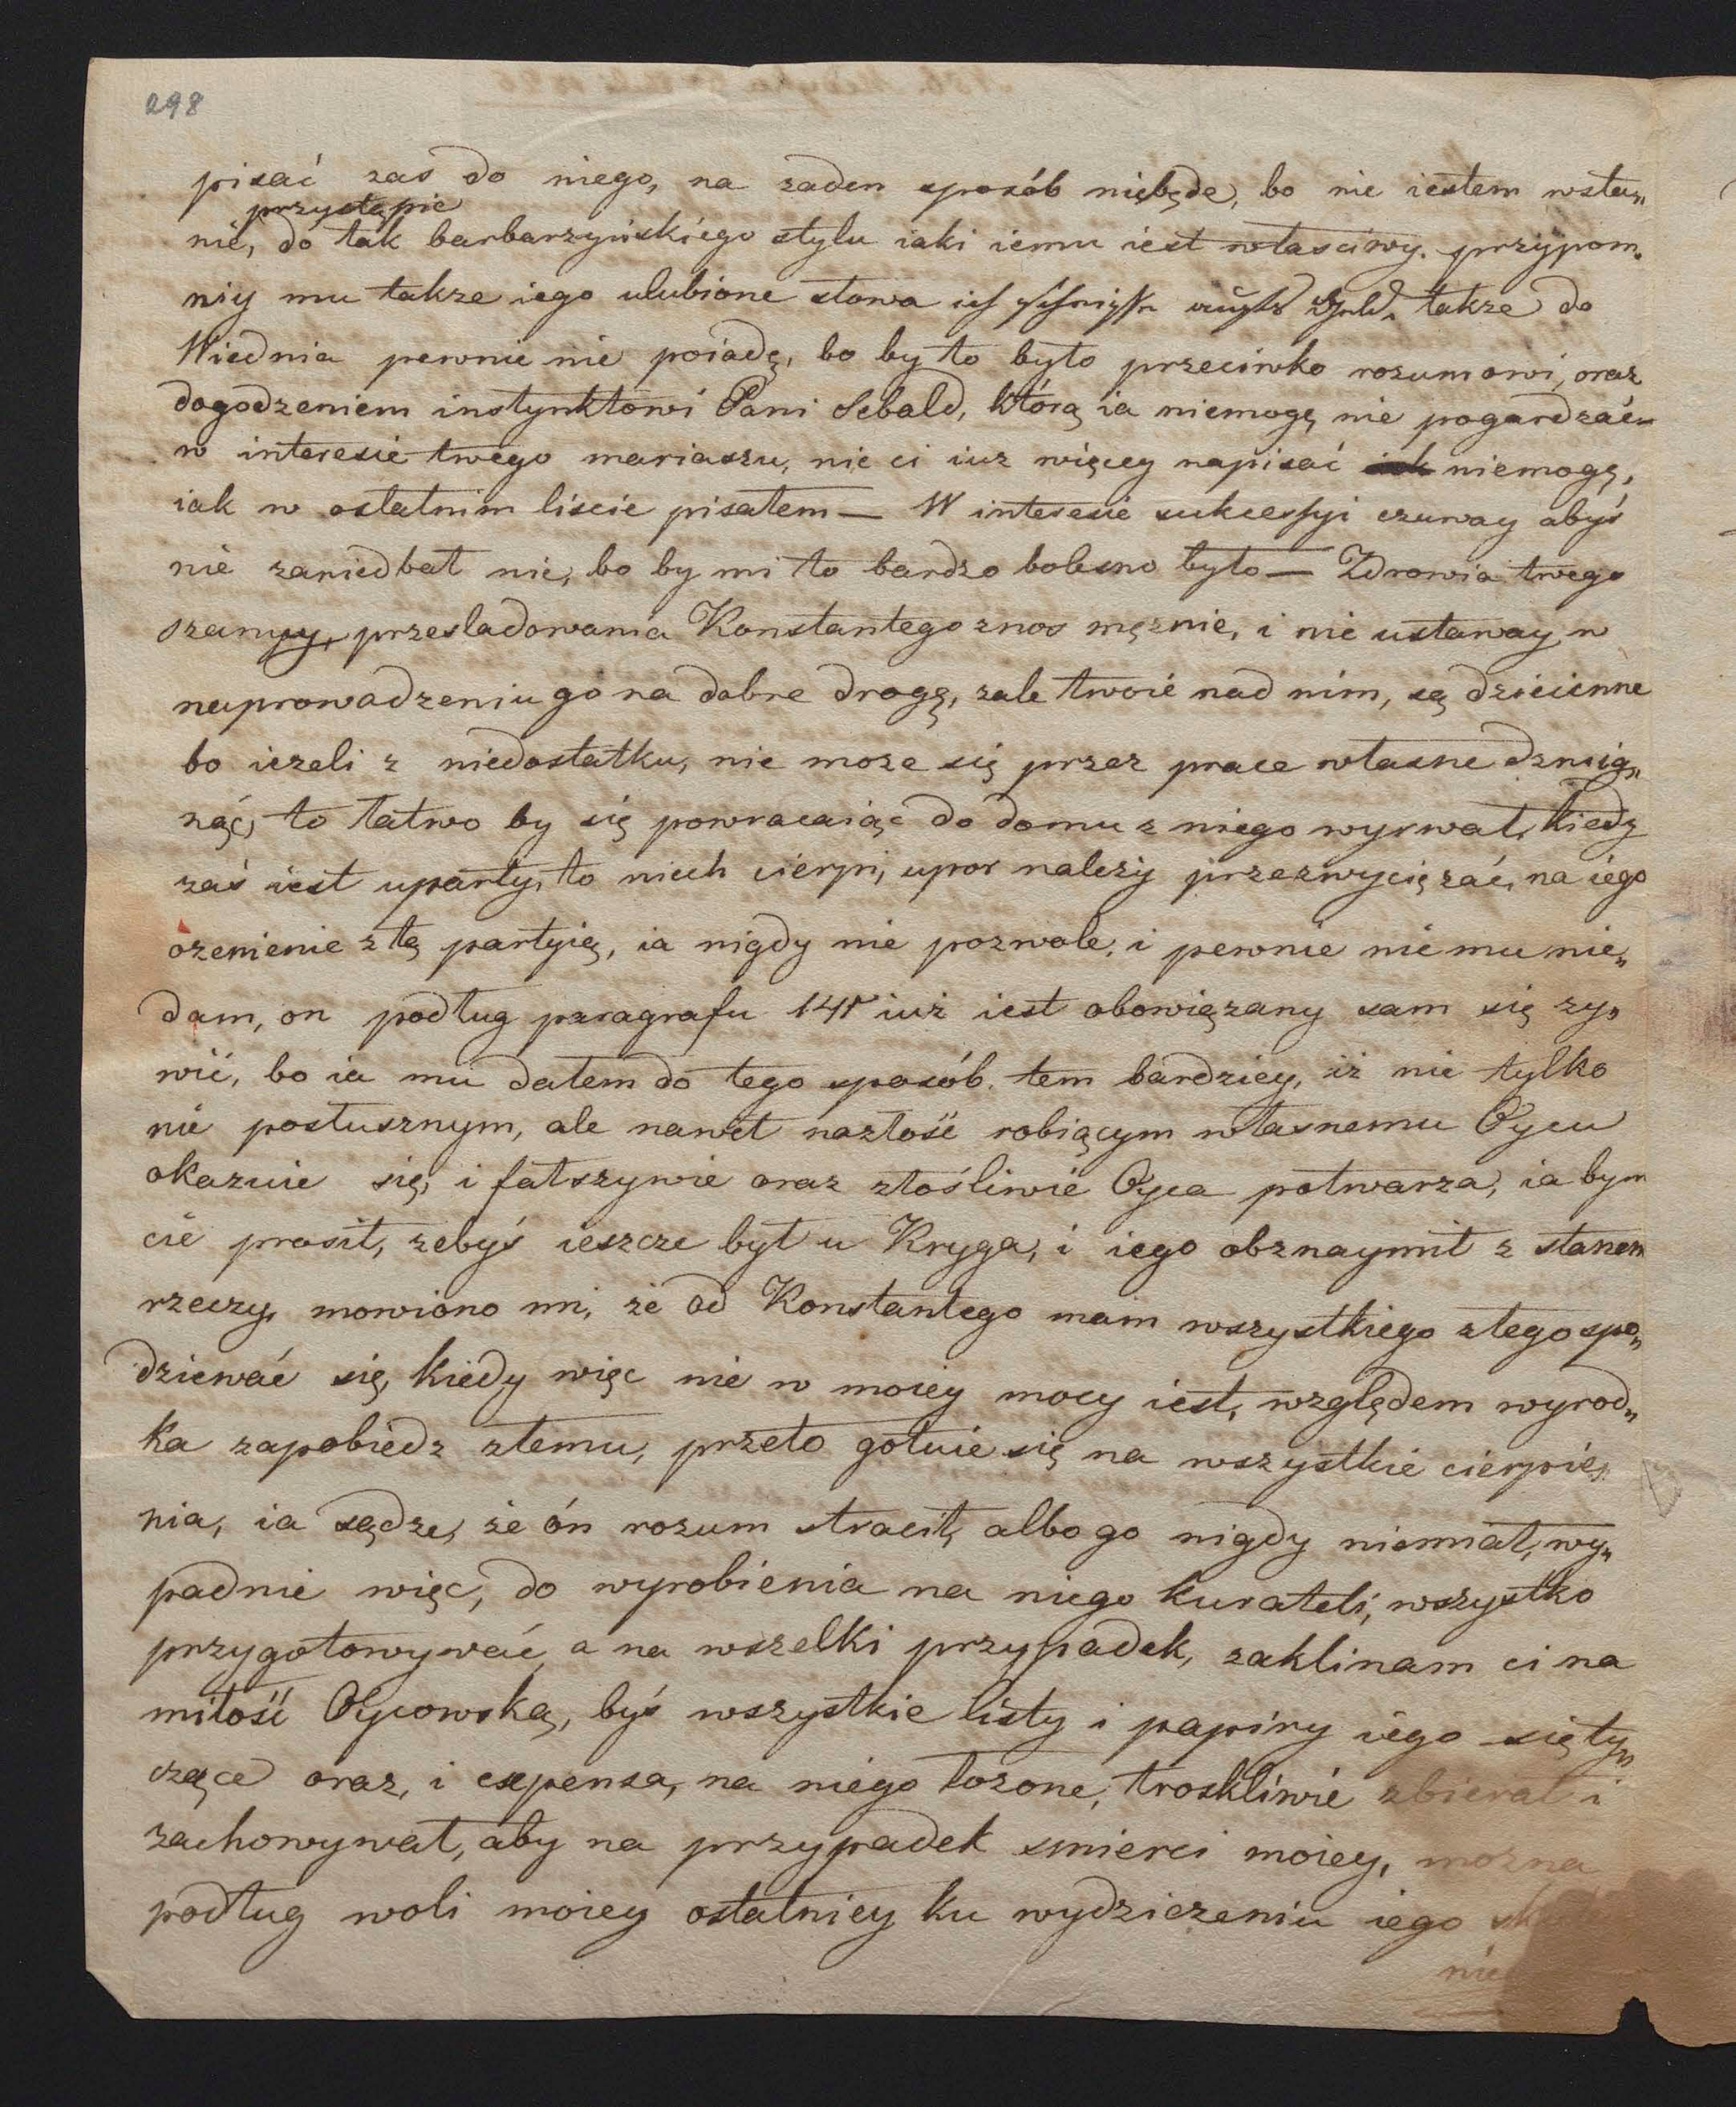 298
pisać zas do niego, na zaden sposób niebęde, bo nie iestem wsta„
przystąpic
nie, do tak barbarzyńskiego stylu iaki iemu iest własciwy. przypom„
niy mu takze iego ulubione słowa ich takze do
Wiednia pewnie nie poiadę, bo by to było przeciwko rozumowi, oraz
dogodzeniem instynktowi Pani Sebald, którą ia niemogę nie pogardzać
w interesie twego mariaszu, nic ci iuz więcey napisać niemogę,
iak w ostatnim liście pisałem — W interesie sukcessyi czuway abyś
nie zaniedbał nic, bo by mi to bardzo bolesno było — Zdrowia twego
szanuy, przesladowania Konstantego znos mężnie, i nie ustaway w
naprowadzeniu go na dobre drogę, zale twoie nad nim, są dziecinne
bo iezeli z niedostatku, nie moze się przez prace własne dzwig„
nąć, to łatwo by się powracaiąc do domu z niego wyrwał, kiedy
zaś iest uparty, to niech cierpi, upor nalezy przezwyciężać, na iego
ozenienie z tą partyią, ia nigdy nie pozwole, i pewnie nic mu nie„
dam, on podług paragrafu 141 iuż iest obowiązany sam się zy„
wić, bo ia mu dałem do tego sposób. tem bardziey, iż nie tylko
nie posłusznym, ale nawet nazłość robiącym własnemu Oycu
okazuie się, i fałszywie oraz złośliwie Oyca potwarza, ia bym
cie prosił, zebyś ieszcze był u Kryga, i iego obznaymił z stanem
rzeczy, mowiono mi, że od Konstantego mam wszystkiego złego spo„
dziewać się, kiedy więc nie w moiey mocy iest, względem wyrod„
ka zapobiedz złemu, przeto gotuie się na wszystkie cierpie„
nia, ia sądze, że ón rozum stracił, albo go nigdy niemiał, wy„
padnie więc, do wyrobienia na niego kurateli, wszystko
przygotowywać, a na wszelki przypadek, zaklinam ci na
miłość Oycowską, byś wszystkie listy i papiry iego się ty„
czące oraz, i expensa, na niego łozone, troskliwie zbierał i
zachowywał, aby na przypadek smierci moiey, mozna
podług woli moiey ostatniey ku wydziczeniu iego